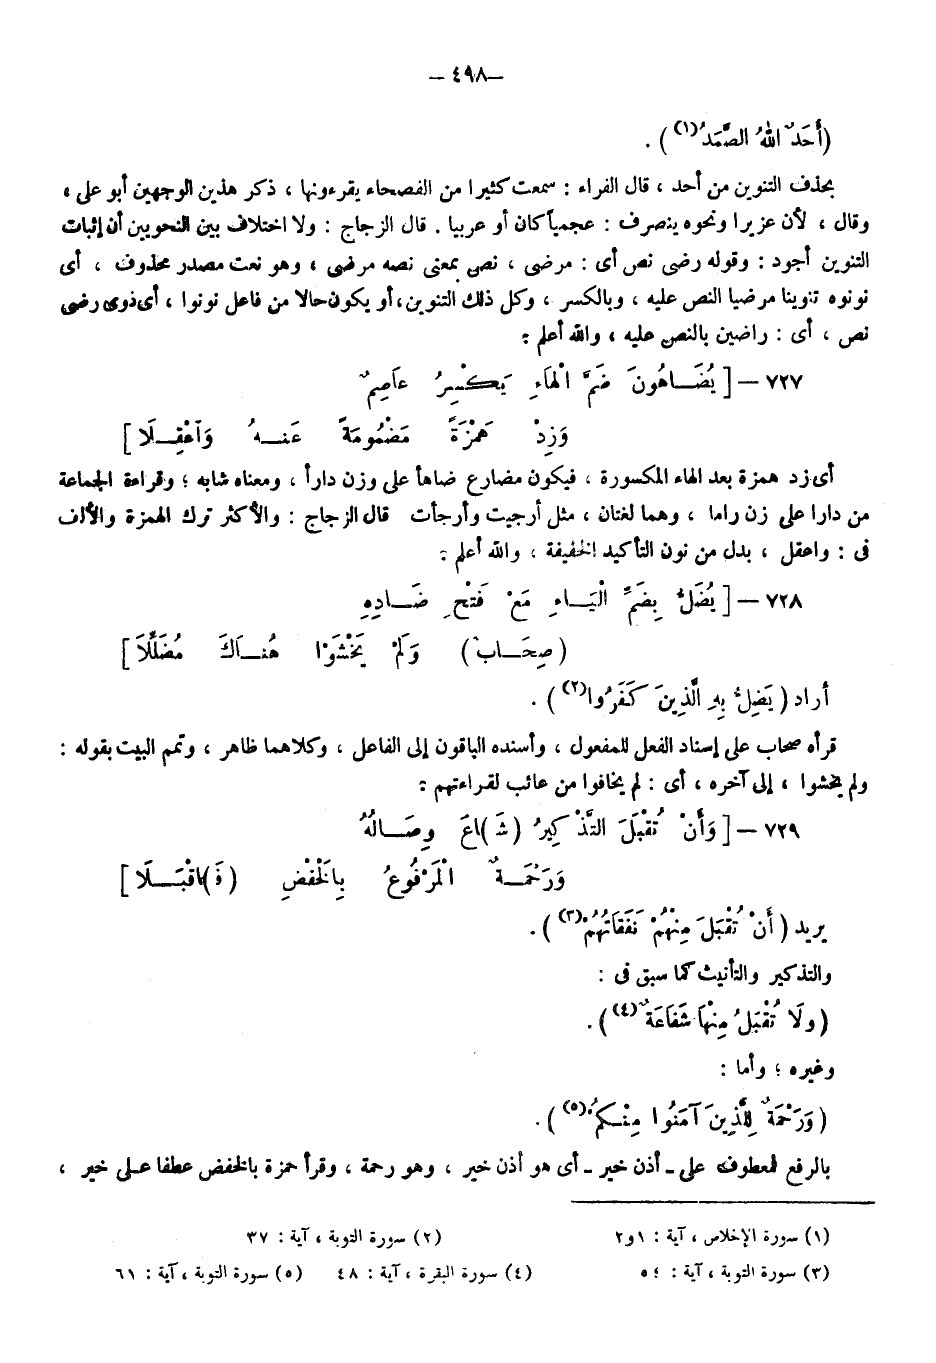 — ٤٩٨ —
(أَحَدٌ اللهُ الصَّمَدُ(١)) .
بحذف التنوين من أحد ، قال الفراء : سمعت كثيرا من الفصحاء يقرءونها ، ذكر هذين الوجهين أبو على ،
وقال ، لأن عزيرا ونحوه ينصرف : عجمياً كان أو عربيا . قال الزجاج : ولا اختلاف بين النحويين أن إثبات
التنوين أجود : وقوله رضى نص أى : مرضى ، نص بمعنى نصه مرضى ، وهو نعت مصدر محذوف ، أى
نونوه تنوينا مرضيا النص عليه ، وبالكسر ، وكل ذلك التنوين ، أو يكون حالا من فاعل نونوا ، أى ذوى رضى
نص ، أى : راضين بالنص عليه ، والله أعلم :
٧٢٧ — [ يُضَـاهُونَ ضَمَّ الْهَاءِ يَكْسِرُ عَاصِمٌ
وَزِدْ هَمْزَةً مَضْمُومَةً عَنـهُ وَاعْقِـلَا ]
أى زد همزة بعد الهاء المكسورة ، فيكون مضارع ضاهأ على وزن دارأ ، ومعناه شابه ؛ وقراءة الجماعة
من دارا على زن راما ، وهما لغتان ، مثل أرجيت وأرجأت قال الزجاج : والأكثر ترك الهمزة والألف
فى : واعقل ، بدل من نون التأكيد الخفيفة ، والله أعلم :
٧٢٨ — [ يُضَلُّ بِضَمِّ الْيَـاءِ مَعْ فَتْحِ ضَـادِهِ
(صِحَـابٌ) وَلَمْ يَخْشَوْا هُنَـاكَ مُضَلِّلَا ]
أراد ( يَضِلُّ بِهِ الَّذِينَ كَفَرُوا(٢) ) .
قرأه صحاب على إسناد الفعل للمفعول ، وأسنده الباقون إلى الفاعل ، وكلاهما ظاهر ، وتمم البيت بقوله :
ولم يخشوا ، إلى آخره ، أى : لم يخافوا من عائب لقراءتهم :
٧٢٩ — [ وَأَنْ تُقْبَلَ التَّذْكِيرُ (شَـ)ـاعَ وِصَـالُهُ
وَرَحْمَـةٌ الْمَرْفُوعُ بِالْخَفْضِ (فَـ)ـاقْبَـلَا ]
يريد ( أَنْ تُقْبَلَ مِنْهُمْ نَفَقَاتُهُمْ(٣) ) .
والتذكير والتأنيث كما سبق فى :
( ولَا تُقْبَلُ مِنْهَا شَفَاعَةٌ(٤) ) .
وغيره ؛ وأما :
( وَرَحْمَةٌ لِلَّذِينَ آمَنُوا مِنْـكُمْ(٥) ) .
بالرفع فمعطوف على ـ أذن خير ـ أى هو أذن خير ، وهو رحمة ، وقرأ حمزة بالخفض عطفا على خير ،
(١) سورة الإخلاص ، آية : ١و٢ (٢) سورة التوبة ، آية : ٣٧
(٣) سورة التوبة ، آية : ٥٤ (٤) سورة البقرة ، آية : ٤٨ (٥) سورة التوبة ، آية : ٦١